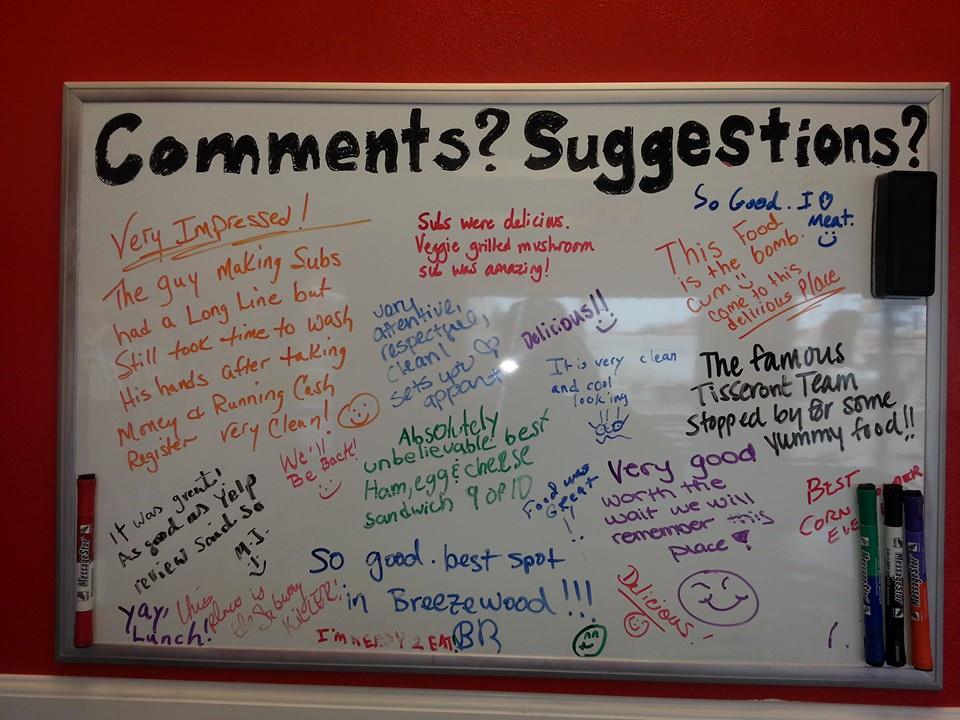 Comments? Suggestions?
Very Impressed!
The guy Making Subs
had a Long Line but
Still took time to Wash
His hands after taking
Money & Running Cash
Register very Clean!
Subs were delicious.
Veggie grilled mushroom
sub was amazing!
So Good. I
Meat.
This Food
is the bomb.
Cum
come to this
delicious Place
very
attentive,
respectful,
clean!
sets you
appart
Delicious!!
It is very clean
and cool
looking
The famous
Tisseront Team
stopped by for some
yummy food!!
We'll
Be Back!
Absolutely
unbelievable best
Ham, egg & cheese
sandwich 9 of 10
Food was
Great
!!
Very good
worth the
wait we will
remember this
place
BEST
CORN
It was great!
As good as Yelp
review said. So
M.J.
So good. best spot
in Breezewood!!!
BR
yay,
Lunch!
this
place is
Subway
KILLER!
I'm READY 2 EAT!
Delicious!
MessageStar
MessageStar
MessageStar